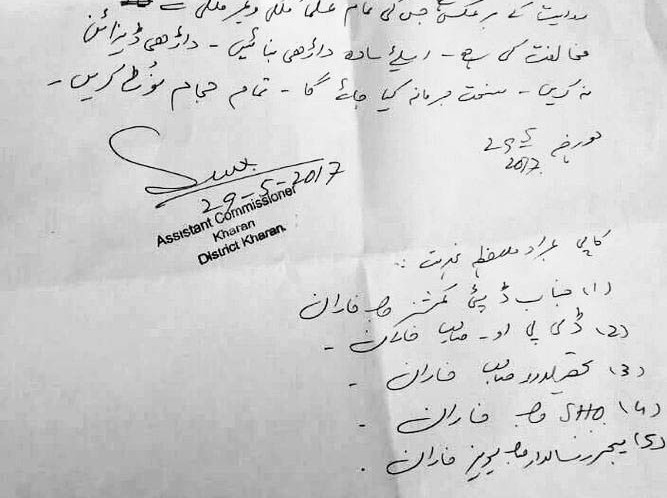 روایت کے برعکس جس کی تمام علماء ملکی و غیر ملکی نے
مخالفت کی ہے - اسلئے سادہ داڑھی بنائیں - داڑھی ڈیزائن
نہ کریں - سخت جرمانہ کیا جائے گا - تمام حجام نوٹ کریں -
مورخہ 29-5-2017
29-5-2017
Assistant Commissioner
Kharan
District Kharan.
کاپی برائے ملاحظہ خدمت :
(1) جناب ڈپٹی کمشنر صاحب خاران
(2) ڈی پی او - صاحب خاران -
(3) تحصیلدار صاحب خاران -
(4) SHO صاحب خاران -
(5) میجر رسالدار صاحب لیویز خاران .